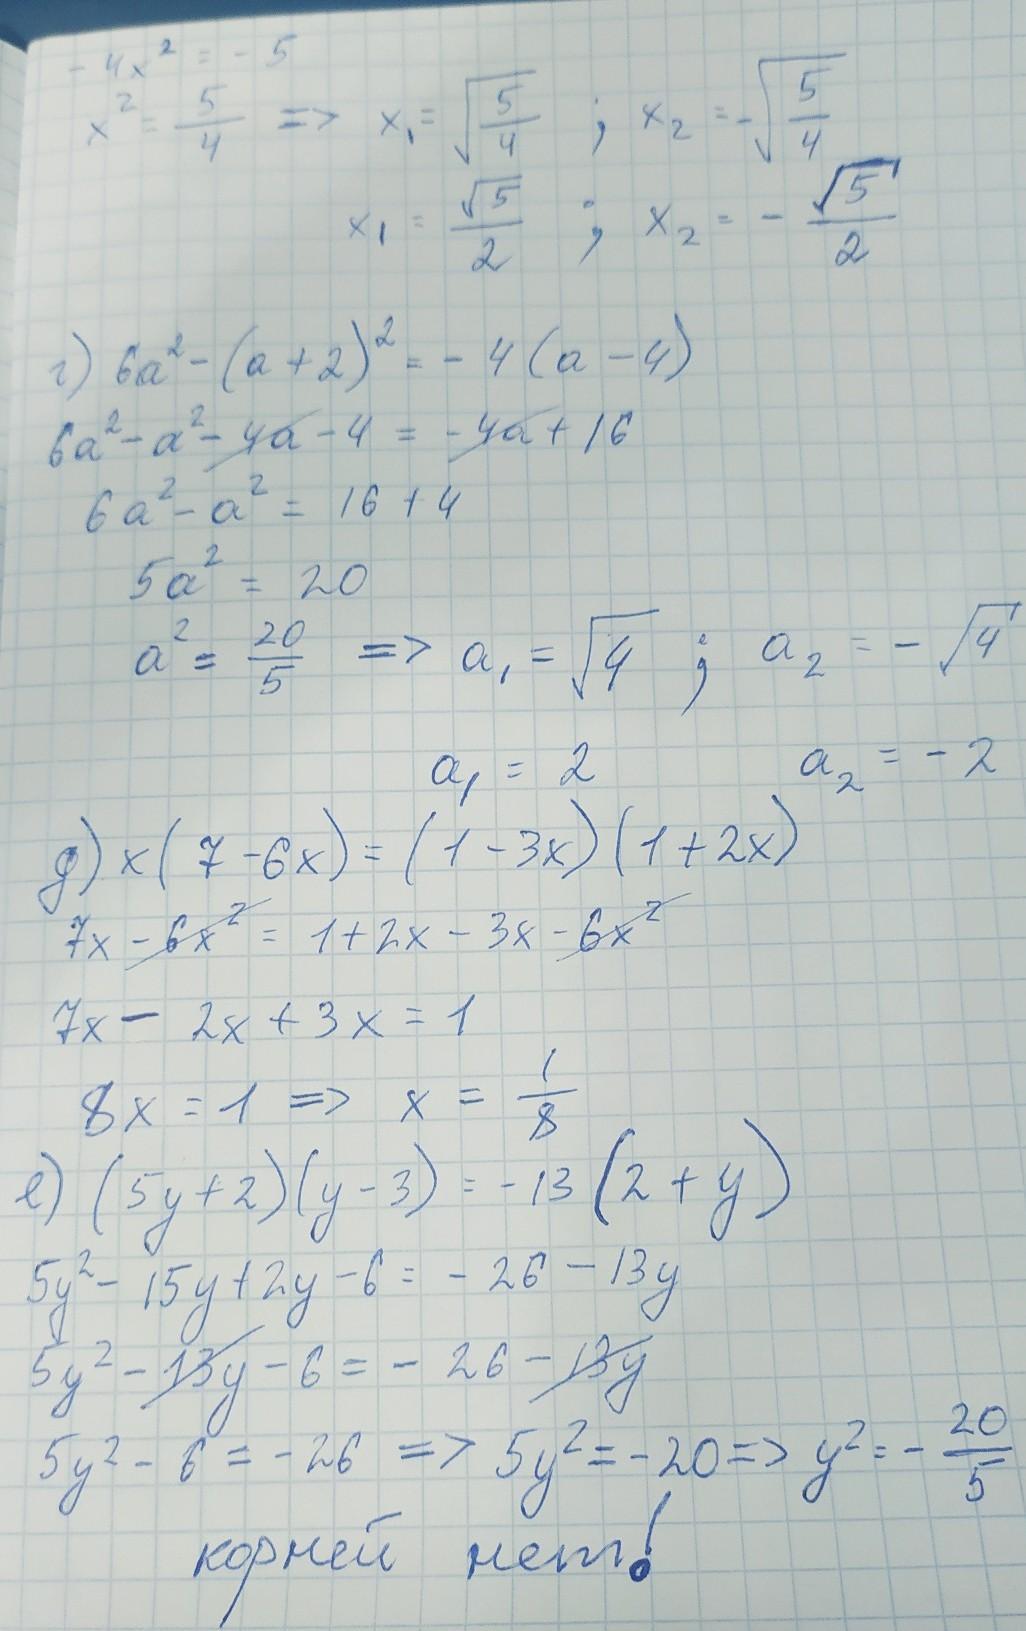 - 4x² = - 5
x² = 5/4 => x₁ = √(5/4) ; x₂ = -√(5/4)
x₁ = √5/2 ; x₂ = - √5/2
г) 6a² - (a + 2)² = - 4 (a - 4)
6a² - a² - 4a - 4 = - 4a + 16
6a² - a² = 16 + 4
5a² = 20
a² = 20/5 => a₁ = √4 ; a₂ = - √4
a₁ = 2 a₂ = - 2
д) x ( 7 - 6x ) = (1 - 3x) (1 + 2x)
7x - 6x² = 1 + 2x - 3x - 6x²
7x - 2x + 3x = 1
8x = 1 => x = 1/8
е) (5y + 2) (y - 3) = - 13 (2 + y)
5y² - 15y + 2y - 6 = - 26 - 13y
5y² - 13y - 6 = - 26 - 13y
5y² - 6 = - 26 => 5y² = - 20 => y² = - 20/5
корней нет!